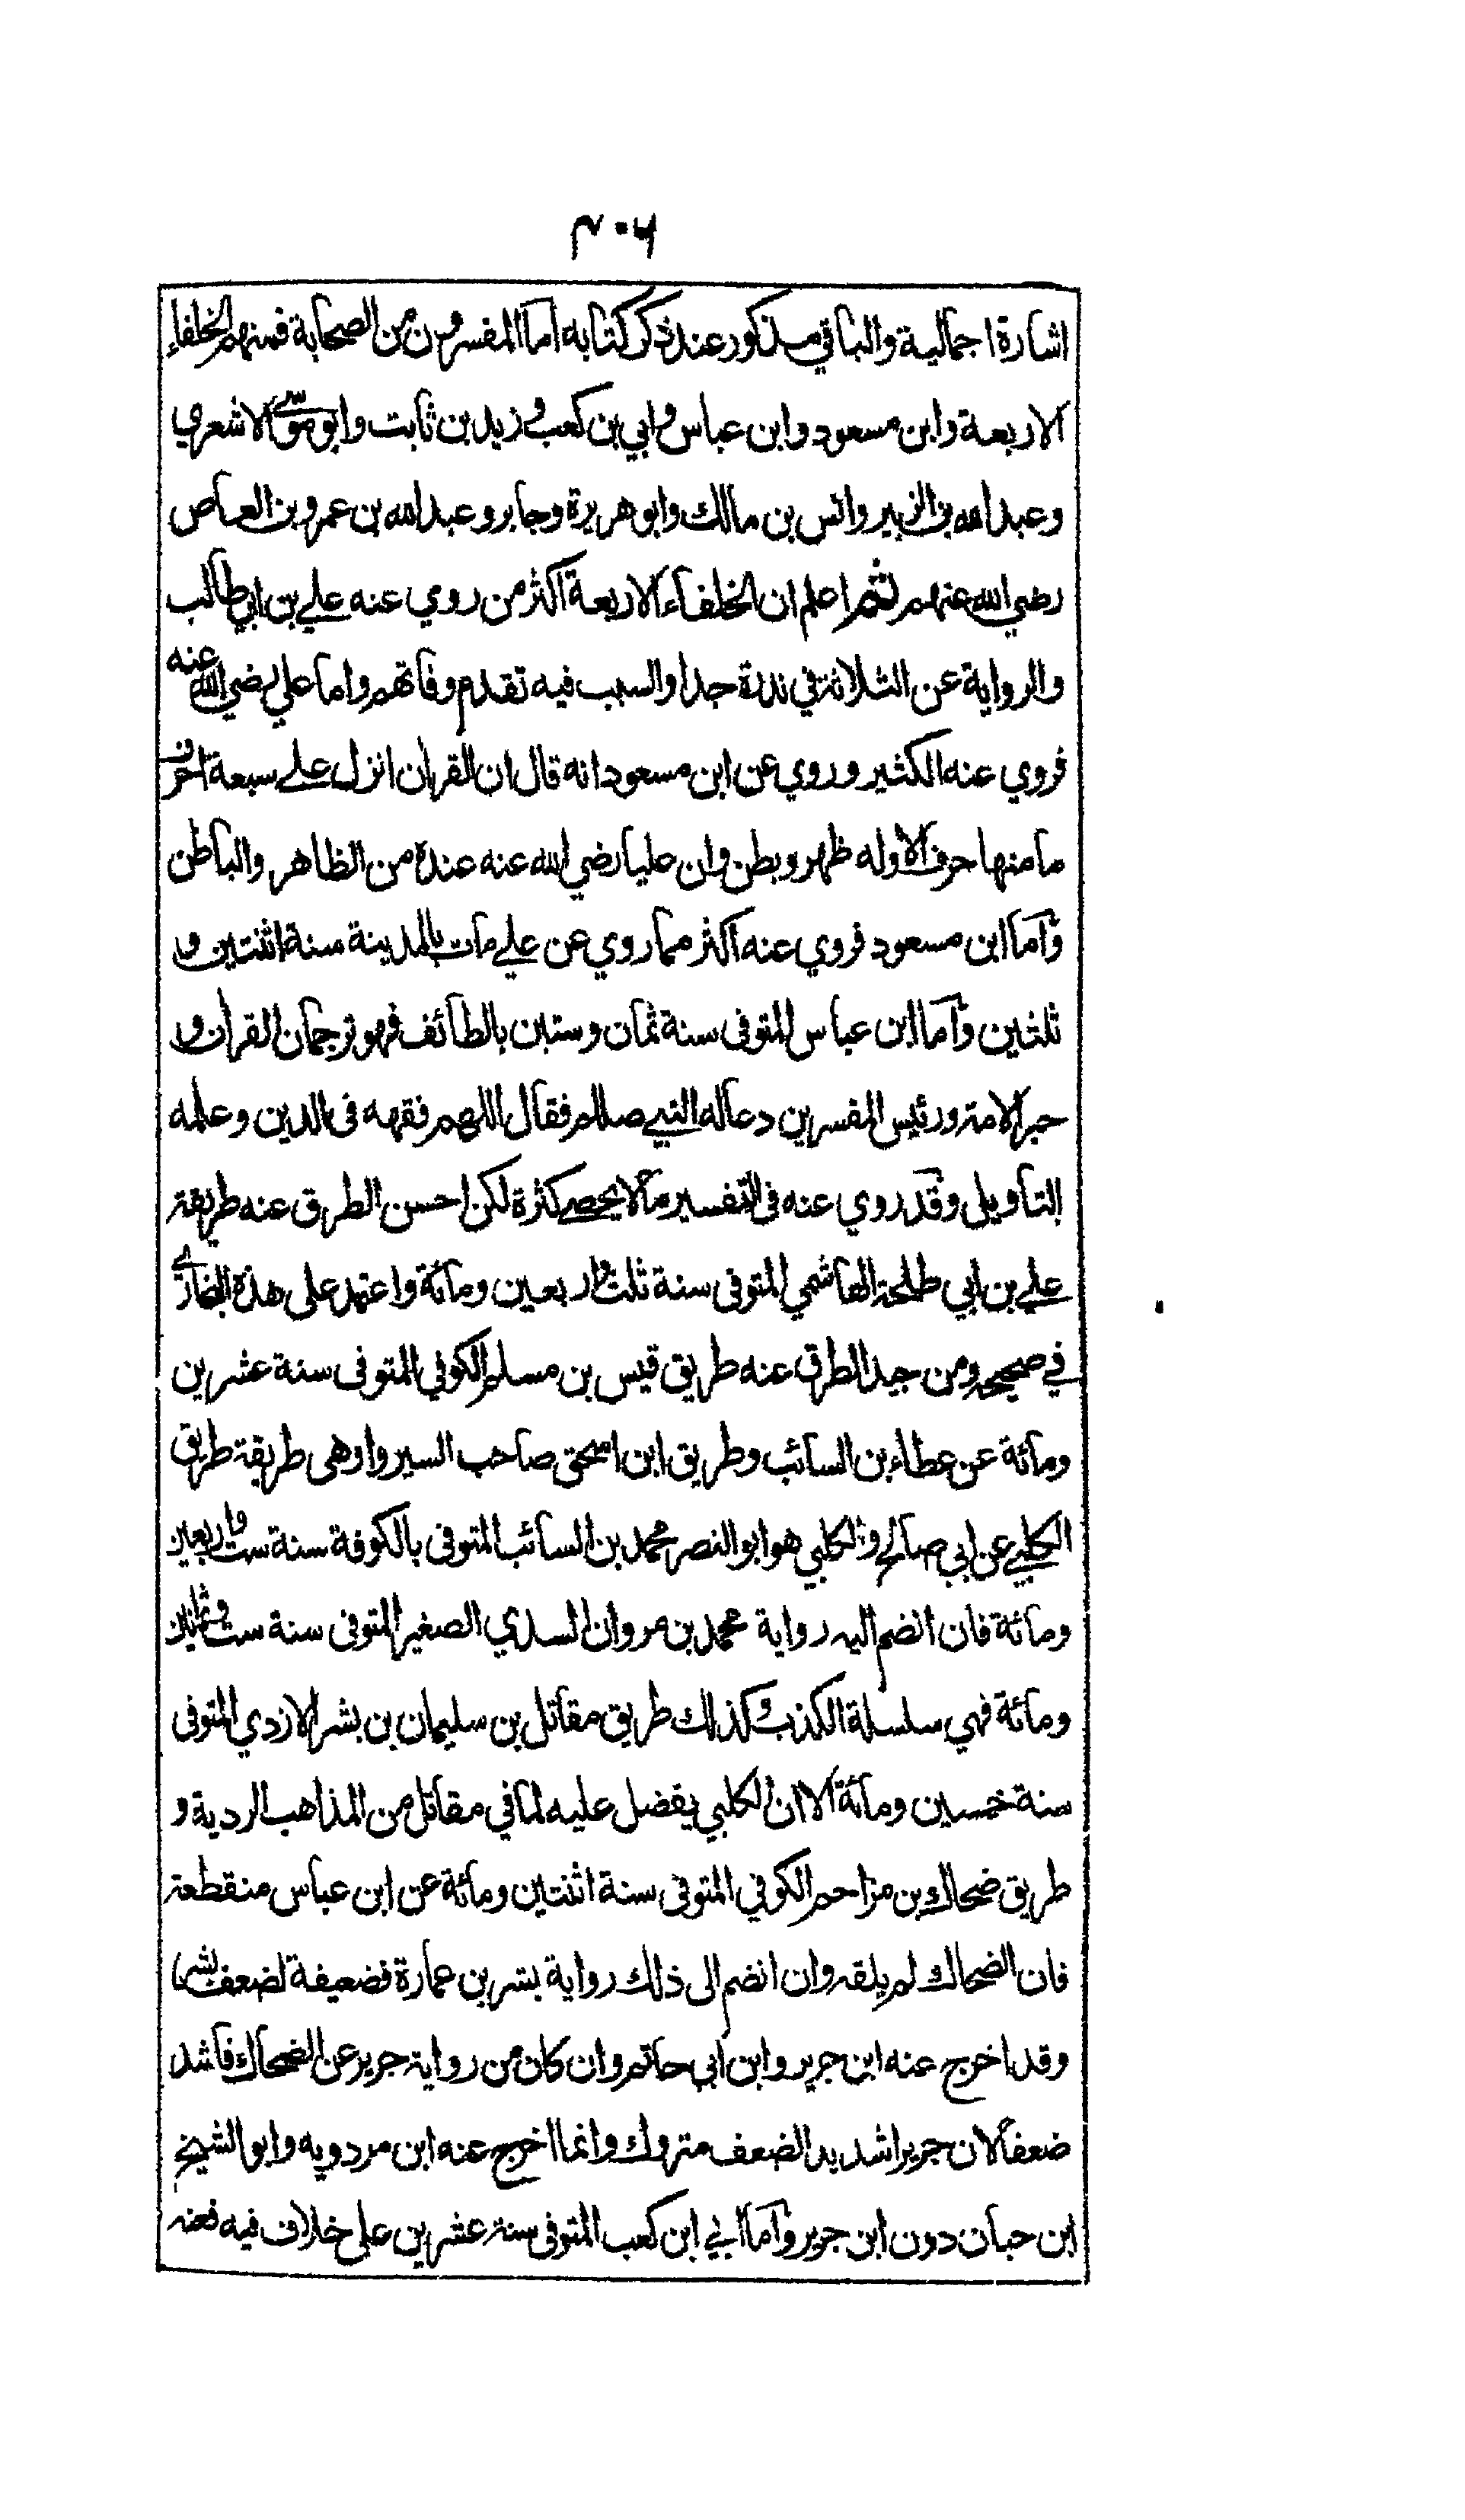 ٤٠٦
اشارة اجمالية والباقي مذكور عند ذكر كتابه اما المفسرون من الصحابة فمنهم الخلفاء
الاربعة وابن مسعود وابن عباس وابي بن كعب وزيد بن ثابت وابو موسى الاشعري
وعبد الله بن الزبير وانس بن مالك وابو هريرة وجابر وعبد الله بن عمرو بن العاص
رضي الله عنهم ثم اعلم ان الخلفاء الاربعة اكثر من روي عنه علي بن ابي طالب
والرواية عن الثلاثة في ندرة جدا والسبب فيه تقدم وفاتهم واما علي رضي الله عنه
فروي عنه الكثير وروي عن ابن مسعود انه قال ان القران انزل على سبعة احرف
ما منها حرف الا وله ظهر وبطن وان عليا رضي الله عنه عنده من الظاهر والباطن
واما ابن مسعود فروي عنه اكثر مما روي عن علي مات بالمدينة سنة اثنتين و
ثلثين واما ابن عباس المتوفى سنة ثمان وستين بالطائف فهو ترجمان القران و
حبر الامة ورئيس المفسرين دعا له النبي صللم فقال اللهم فقهه فى الدين وعلمه
التأويل وقد روي عنه فى التفسير ما لا يحصى كثرة لكن احسن الطرق عنه طريقة
علي بن ابي طلحة الهاشمي المتوفى سنة ثلث واربعين ومائة واعتمد على هذه البخاري
في صحيحه ومن جيد الطرق عنه طريق قيس بن مسلم الكوفي المتوفى سنة عشرين
ومائة عن عطاء بن السائب وطريق ابن اسحق صاحب السير واوهى طريقة طريق
الكلبي عن ابي صالح والكلبي هو ابو النصر محمد بن السائب المتوفى بالكوفة سنة ست واربعين
ومائة فان انضم اليه رواية محمد بن مروان السدي الصغير المتوفى سنة ست وثمانين
ومائة فهي سلسلة الكذب وكذلك طريق مقاتل بن سليمان بن بشر الازدي المتوفى
سنة خمسين ومائة الا ان الكلبي يفضل عليه لما في مقاتل من المذاهب الردية و
طريق ضحاك بن مزاحم الكوفي المتوفى سنة اثنتين ومائة عن ابن عباس منقطعة
فان الضحاك لم يلقه وان انضم الى ذلك رواية بشر بن عمارة فضعيفة لضعف بشر
وقد اخرج عنه ابن جرير وابن ابي حاتم وان كان من رواية جرير عن الضحاك فاشد
ضعفا لان جريرا شديد الضعف متروك وانما اخرج عنه ابن مردويه وابو الشيخ
ابن حبان دون ابن جرير واما ابي ابن كعب المتوفى سنة عشرين على خلاف فيه فعنه